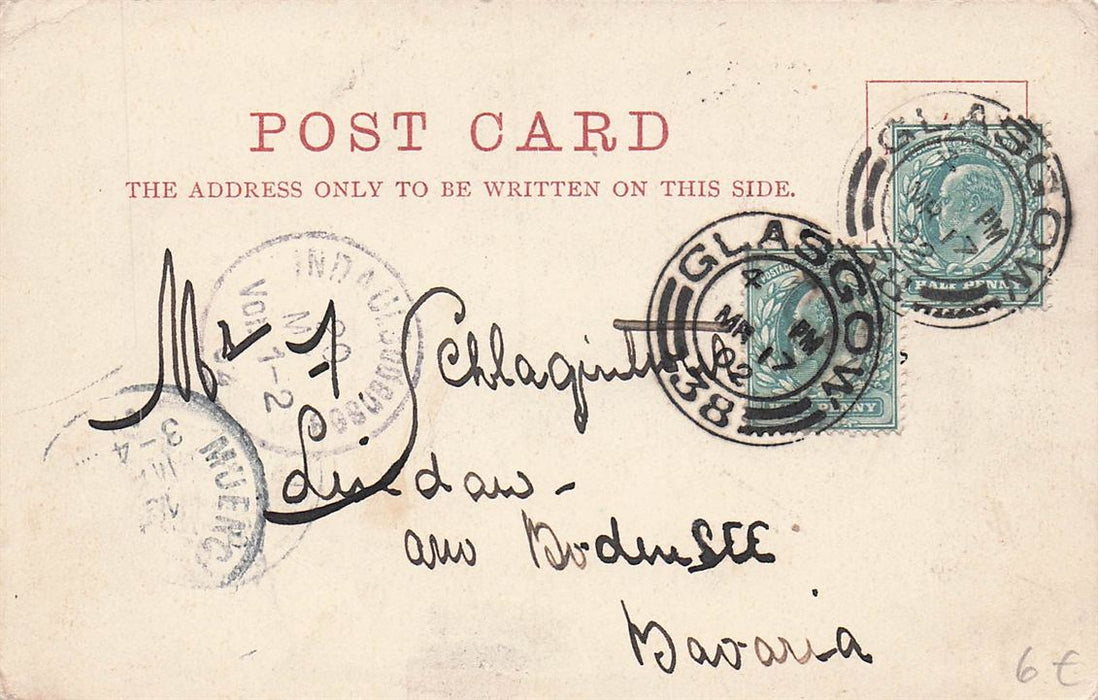 POST CARD
THE ADDRESS ONLY TO BE WRITTEN ON THIS SIDE.
GLASGOW
PM
MR 17
02
HALF PENNY
GLASGOW
4 PM
MR 17
02
38
POSTAGE
PENNY
INDAU (Bodensee
20
M
VOR 1-2
Mr
Lindau -
am BodenSEE
Bavaria
MUENC
3-4
6 €